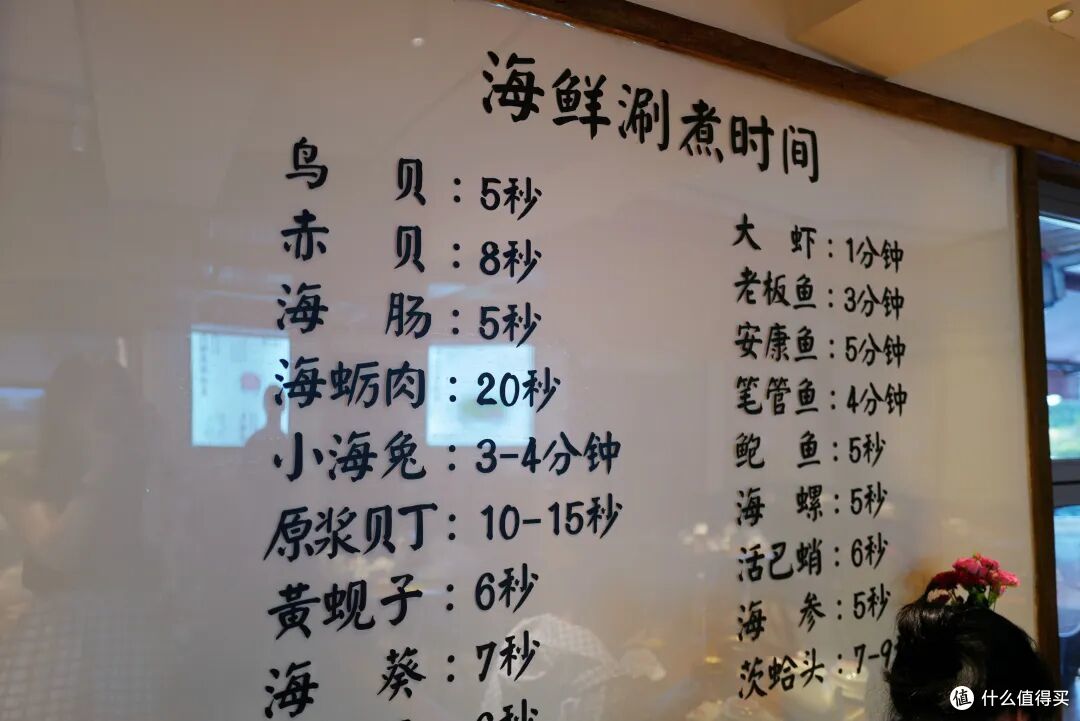 海鲜涮煮时间
鸟贝：5秒
赤贝：8秒
海肠：5秒
海蛎肉：20秒
小海兔：3-4分钟
原浆贝丁：10-15秒
黄蚬子：6秒
海葵：7秒
大虾：1分钟
老板鱼：3分钟
安康鱼：5分钟
笔管鱼：4分钟
鲍鱼：5秒
海螺：5秒
活巴蛸：6秒
海参：5秒
茨蛤头：7-9
值 什么值得买